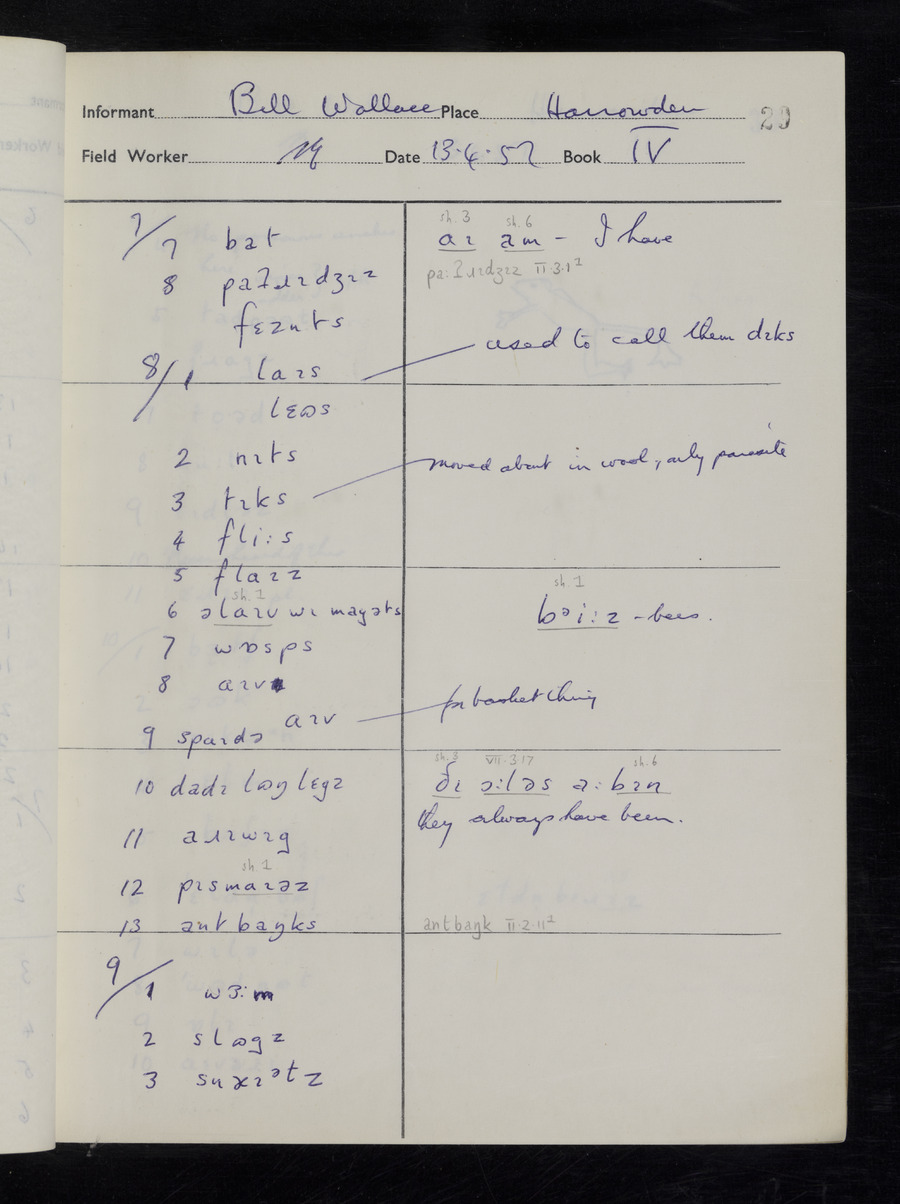 Informant Bill Wallace Place Harrowden 29
Field Worker Date 13.4.57 Book IV
7/7 bat
8 paʔɹɪdʒɪz
fɛznts
8/1 laɪs
lɛʊs
2 nɪts
3 tɪks
4 fli:s
5 flaɪz
sh. 1
6 əlaɪv wɪ magəts
7 wɒsps
8 aɪv
aɪv
9 spaɪdə
10 dadɪ lɒŋ lɛgz
11 aɪɹɪwɪg
sh. 1
12 pɪsmaɪəz
13 ant baŋks
9/1 wɜ:m
2 slʊgz
3
sh. 3 sh. 6
aɪ am – I have
pa:ʔɹɪdʒɪz II.3.1²
used to call them dɪks
moved about in wool, only parasite
sh. 1
bᵊi:z – bees.
for basket thing
sh. 3 VII.3.17 sh. 6
ðɪ ɔ:ləs a: bɪn
they always have been.
antbaŋk II.2.11²